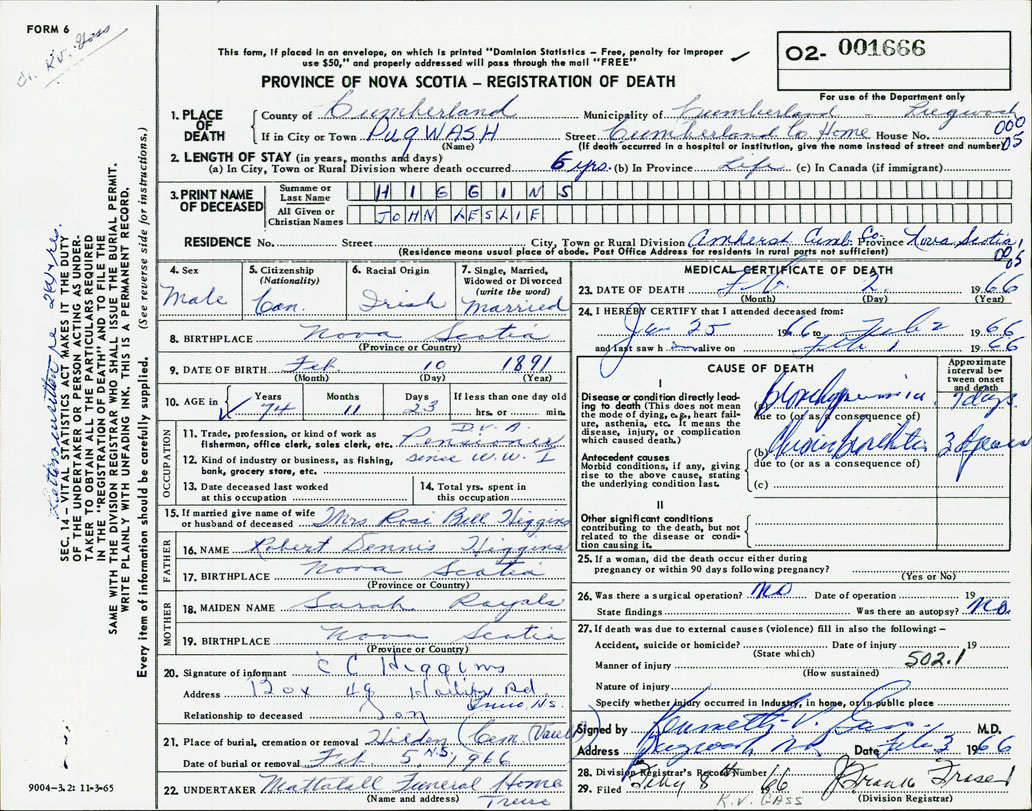 FORM 6
Dr. K.V. Gass
This form, if placed in an envelope, on which is printed "Dominion Statistics – Free, penalty for improper
use $50," and properly addressed will pass through the mail "FREE"
PROVINCE OF NOVA SCOTIA – REGISTRATION OF DEATH
02- 001666
For use of the Department only
1. PLACE OF DEATH
County of Cumberland Municipality of Cumberland - Pugwash
If in City or Town PUGWASH Street Cumberland Co Home House No. 000
(Name) (If death occurred in a hospital or institution, give the name instead of street and number) 05
2. LENGTH OF STAY (in years, months and days)
(a) In City, Town or Rural Division where death occurred 5 yrs. (b) In Province Life (c) In Canada (if immigrant)
3. PRINT NAME OF DECEASED
Surname or Last Name HIGGINS
All Given or Christian Names JOHN LESLIE
RESIDENCE No. Street City, Town or Rural Division Amherst Cumb. Co. Province Nova Scotia
(Residence means usual place of abode. Post Office Address for residents in rural parts not sufficient)
4. Sex Male
5. Citizenship (Nationality) Can.
6. Racial Origin Irish
7. Single, Married, Widowed or Divorced (write the word) Married
8. BIRTHPLACE Nova Scotia
(Province or Country)
9. DATE OF BIRTH Feb. 10 1891
(Month) (Day) (Year)
10. AGE in Years 74 Months 11 Days 23 If less than one day old hrs. or min.
OCCUPATION
11. Trade, profession, or kind of work as fisherman, office clerk, sales clerk, etc. D.V.A. Pensioner
12. Kind of industry or business, as fishing, bank, grocery store, etc. since W.W. I
13. Date deceased last worked at this occupation
14. Total yrs. spent in this occupation
15. If married give name of wife or husband of deceased Mrs Rosi Bell Higgins
FATHER
16. NAME Robert Dennis Higgins
17. BIRTHPLACE Nova Scotia
(Province or Country)
MOTHER
18. MAIDEN NAME Sarah Royals
19. BIRTHPLACE Nova Scotia
(Province or Country)
20. Signature of informant C C Higgins
Address Box 49 Halifax Rd. Truro, N.S.
Relationship to deceased Son
21. Place of burial, cremation or removal Hilden N.S. (Cem. Vault)
Date of burial or removal Feb 5 1966
22. UNDERTAKER Mattatall Funeral Home
(Name and address) Truro
MEDICAL CERTIFICATE OF DEATH
23. DATE OF DEATH Feb. 2. 1966
(Month) (Day) (Year)
24. I HEREBY CERTIFY that I attended deceased from:
Jan 25 1966 to Feb 2 1966
and last saw h im alive on Feb 1 1966
CAUSE OF DEATH
Approximate interval between onset and death
I
Disease or condition directly leading to death (This does not mean the mode of dying, e.g., heart failure, asthenia, etc. It means the disease, injury, or complication which caused death.)
(a) Bronchopneumonia 7 days
due to (or as a consequence of)
Antecedent causes
Morbid conditions, if any, giving rise to the above cause, stating the underlying condition last.
(b) Chronic Bronchitis 20 years
due to (or as a consequence of)
(c)
II
Other significant conditions contributing to the death, but not related to the disease or condition causing it.
25. If a woman, did the death occur either during pregnancy or within 90 days following pregnancy?
(Yes or No)
26. Was there a surgical operation? NO Date of operation 19
State findings Was there an autopsy? No.
27. If death was due to external causes (violence) fill in also the following: –
Accident, suicide or homicide? Date of injury 19
(State which)
Manner of injury 502.1
(How sustained)
Nature of injury
Specify whether injury occurred in Industry, in home, or in public place
Signed by Kenneth V. Gass M.D.
Address Pugwash, N.S. Date Feb 3 1966
28. Division Registrar's Record Number
29. Filed Feby 8 66 J Frank Fraser
(Division Registrar)
K.V. GASS
SEC. 14 – VITAL STATISTICS ACT MAKES IT THE DUTY
OF THE UNDERTAKER OR PERSON ACTING AS UNDER-
TAKER TO OBTAIN ALL THE PARTICULARS REQUIRED
IN THE "REGISTRATION OF DEATH" AND TO FILE THE
SAME WITH THE DIVISION REGISTRAR WHO SHALL ISSUE THE BURIAL PERMIT.
WRITE PLAINLY WITH UNFADING INK. THIS IS A PERMANENT RECORD.
Every item of information should be carefully supplied. (See reverse side for instructions.)
9004-3.2: 11-3-65